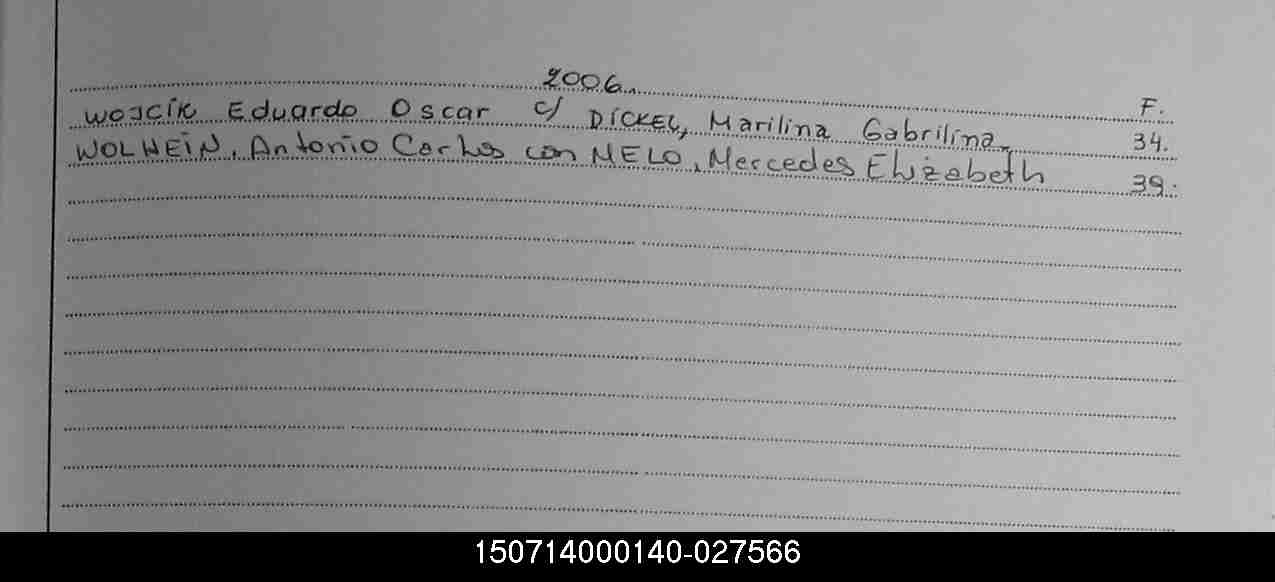 2006.
F.
WOJCIK Eduardo Oscar c/ DICKEL, Marilina Gabrilina. 34.
WOLHEIN, Antonio Carlos con MELO, Mercedes Elizabeth 39.
150714000140-027566